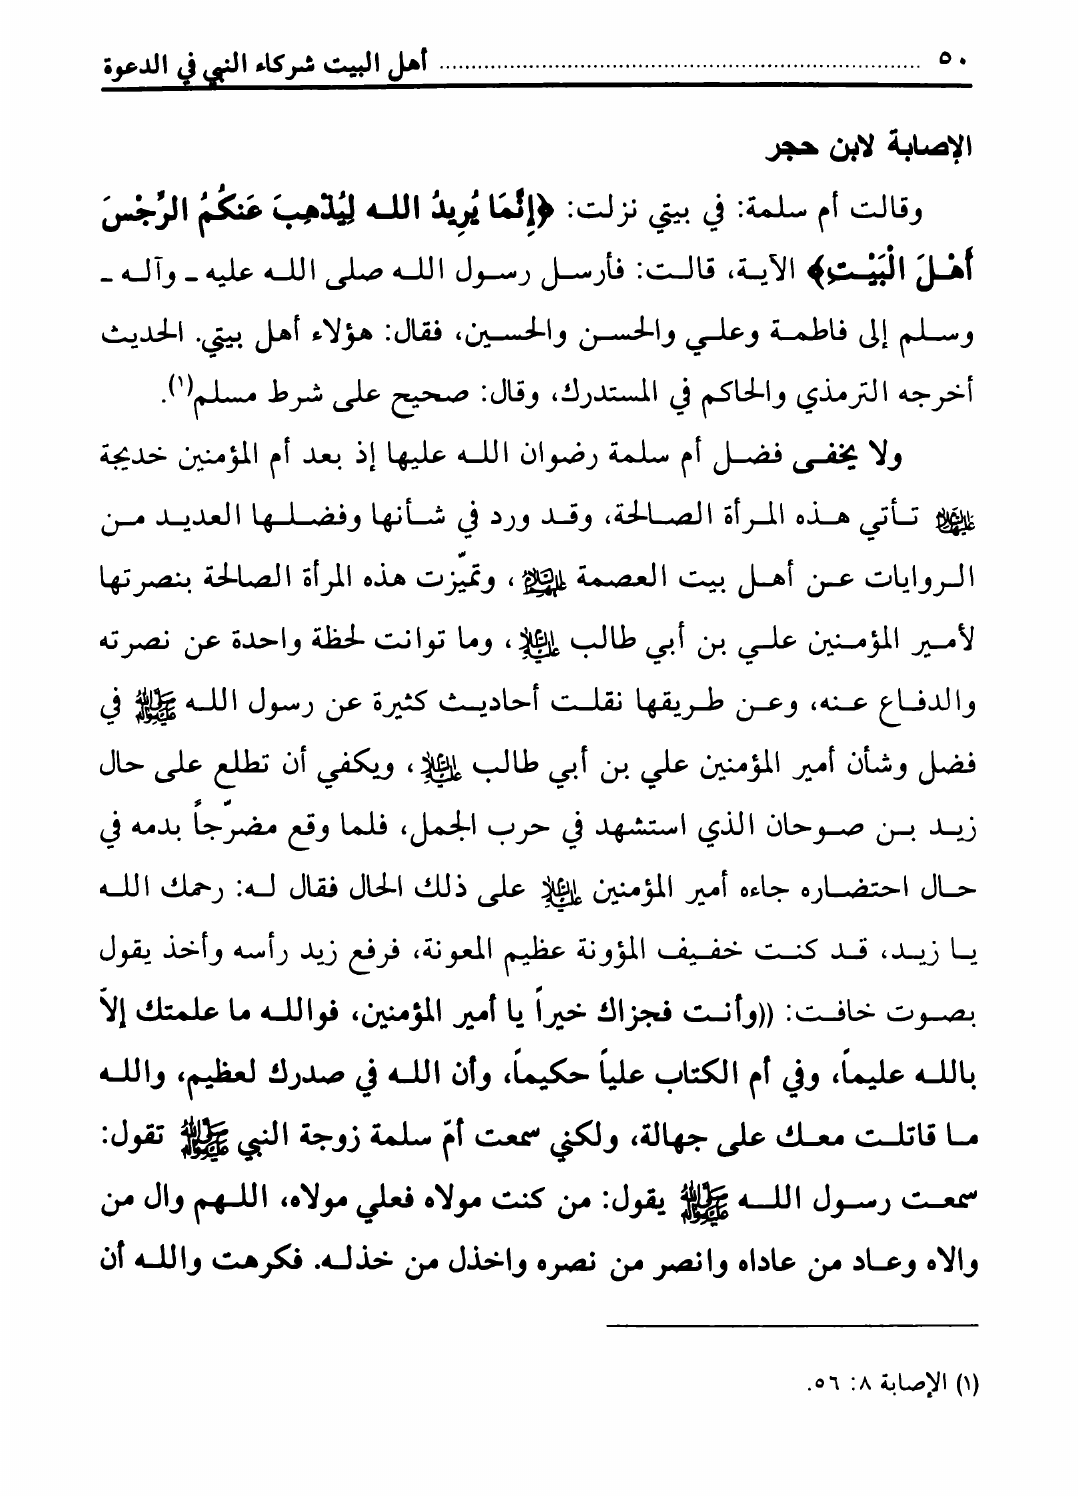 ٥٠ ........ أهل البيت شركاء النبي في الدعوة
الإصابة لابن حجر
وقالت أم سلمة: في بيتي نزلت: ﴿إِنَّمَا يُرِيدُ الله لِيُذْهِبَ عَنكُمُ الرِّجْسَ
أَهْلَ الْبَيْتِ﴾ الآية، قالت: فأرسل رسول الله صلى الله عليه ـ وآله ـ
وسلم إلى فاطمة وعلي والحسن والحسين، فقال: هؤلاء أهل بيتي. الحديث
أخرجه الترمذي والحاكم في المستدرك، وقال: صحيح على شرط مسلم(١).
ولا يخفى فضل أم سلمة رضوان الله عليها إذ بعد أم المؤمنين خديجة
عليها السلام تأتي هذه المرأة الصالحة، وقد ورد في شأنها وفضلها العديد من
الروايات عن أهل بيت العصمة عليهم السلام، وتميّزت هذه المرأة الصالحة بنصرتها
لأمير المؤمنين علي بن أبي طالب عليه السلام، وما توانت لحظة واحدة عن نصرته
والدفاع عنه، وعن طريقها نقلت أحاديث كثيرة عن رسول الله صلى الله عليه وآله في
فضل وشأن أمير المؤمنين علي بن أبي طالب عليه السلام، ويكفي أن تطلع على حال
زيد بن صوحان الذي استشهد في حرب الجمل، فلما وقع مضرّجاً بدمه في
حال احتضاره جاءه أمير المؤمنين عليه السلام على ذلك الحال فقال له: رحمك الله
يا زيد، قد كنت خفيف المؤونة عظيم المعونة، فرفع زيد رأسه وأخذ يقول
بصوت خافت: ((وأنت فجزاك خيراً يا أمير المؤمنين، فوالله ما علمتك إلاّ
بالله عليماً، وفي أم الكتاب علياً حكيماً، وأن الله في صدرك لعظيم، والله
ما قاتلت معك على جهالة، ولكني سمعت أمّ سلمة زوجة النبي صلى الله عليه وآله تقول:
سمعت رسول الله صلى الله عليه وآله يقول: من كنت مولاه فعلي مولاه، اللهم وال من
والاه وعاد من عاداه وانصر من نصره واخذل من خذله. فكرهت والله أن
(١) الإصابة ٨: ٥٦.